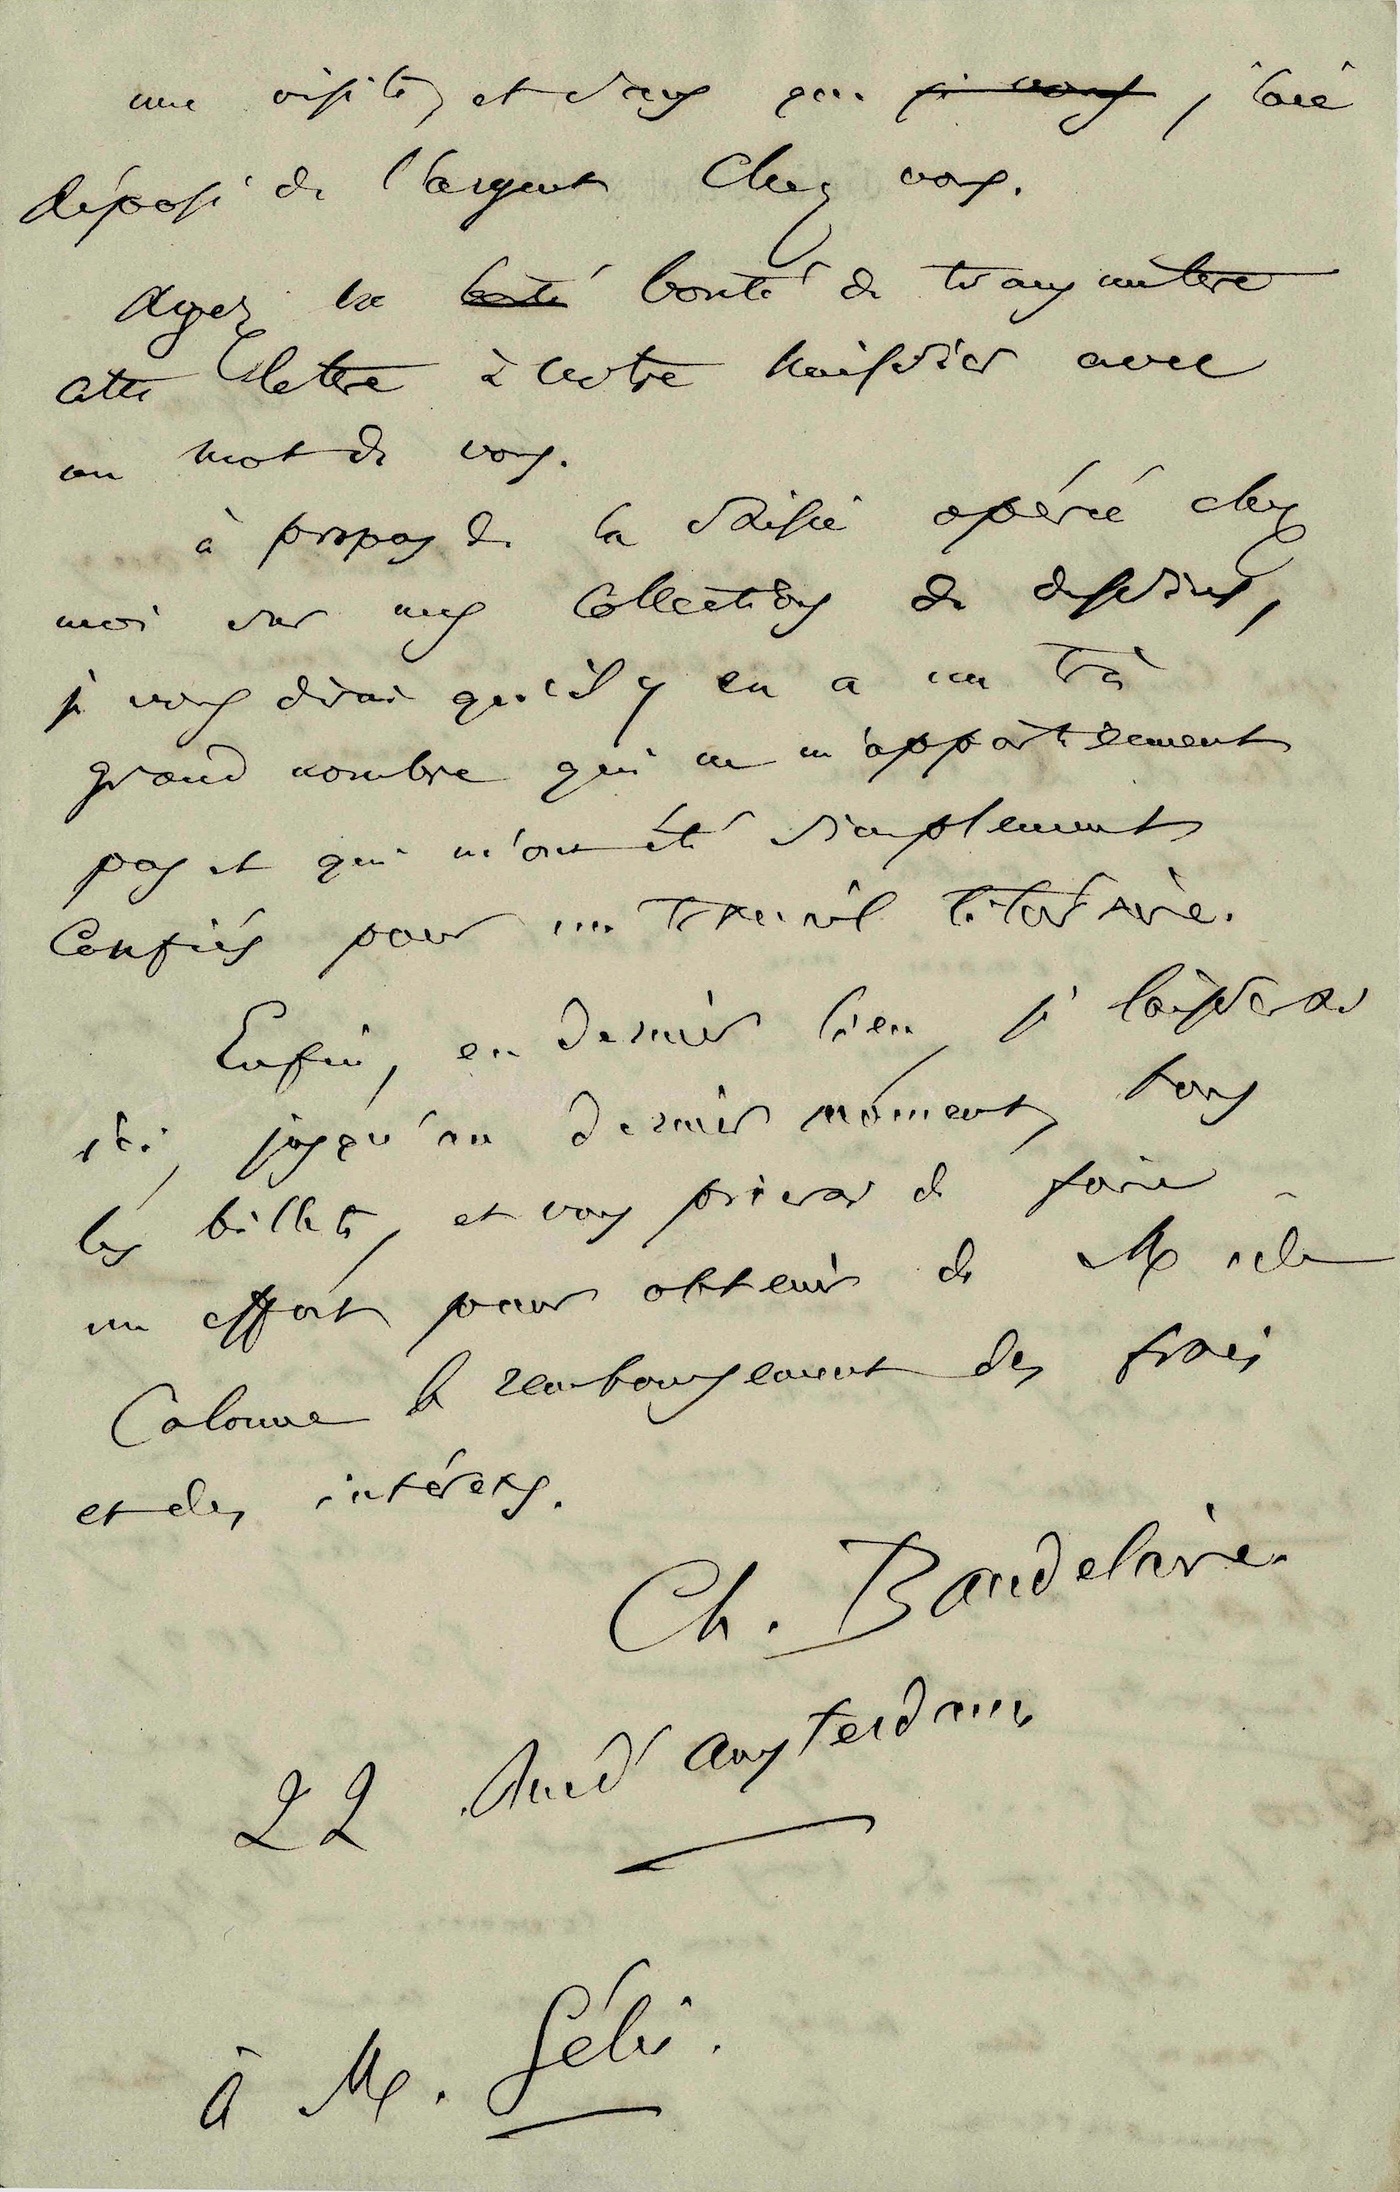 une visite, et sans que si vous j'aie
déposé de l'argent chez vous.
Ayez la bonté bonté de transmettre
cette lettre à votre huissier avec
un mot de vous.
à propos de la saisie opérée chez
moi sur mes collections de dessins,
je vous dirai qu'il y en a un très
grand nombre qui ne m'appartiennent
pas et qui m'ont été simplement
confiés pour un travail littéraire.
Enfin, en dernier lieu, je laisserai
ici, jusqu'au dernier moment, tous
les billets, et vous prierai de faire
un effort pour obtenir de M de
Calonne le remboursement des frais
et des intérêts.
Ch. Baudelaire.
22 rue d'amsterdam
à M. Gélis.